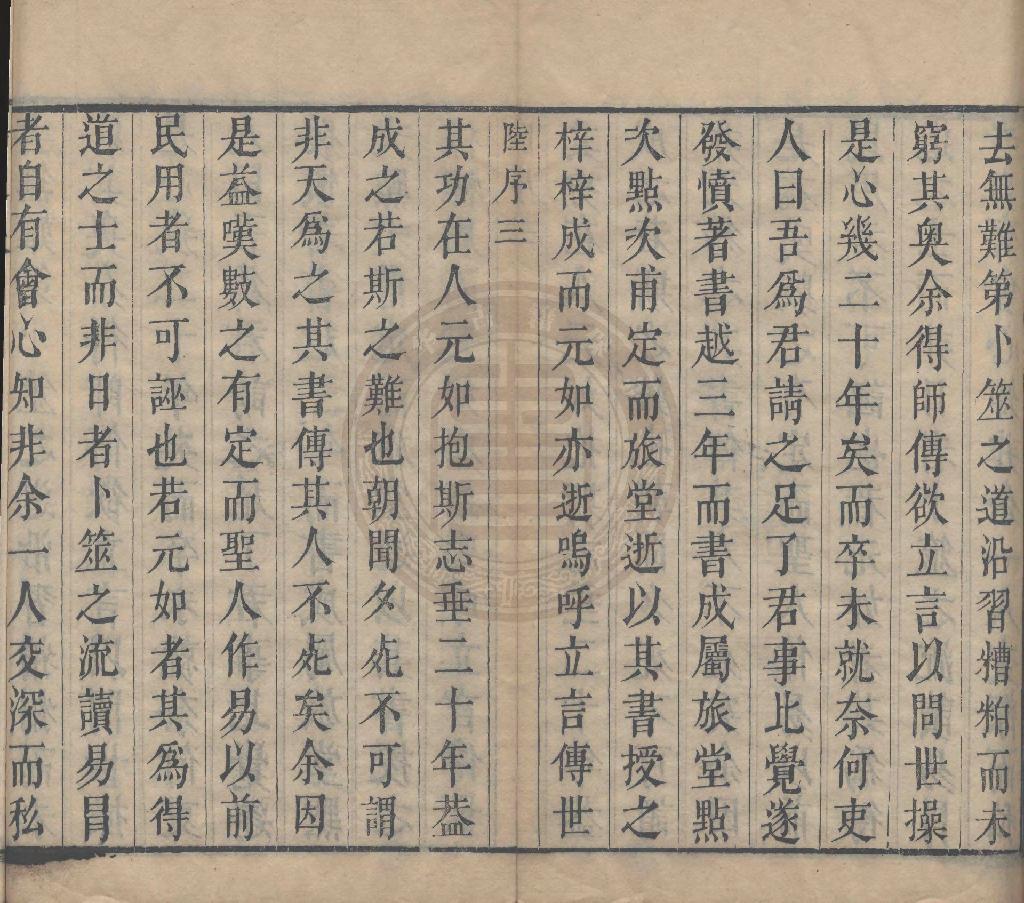 去無難第卜筮之道沿習糟粕而未
窮其奥余得師傳欲立言以問世操
是心幾二十年矣而卒未就奈何吏
人曰吾爲君請之足了君事比覺遂
發憤著書越三年而書成屬旅堂點
次點次甫定而旅堂逝以其書授之
梓梓成而元如亦逝嗚呼立言傳世
陸序三
其功在人元如抱斯志垂二十年葢
成之若斯之難也朝聞夕死不可謂
非天爲之其書傳其人不死矣余因
是益嘆數之有定而聖人作易以前
民用者不可誣也若元如者其爲得
道之士而非日者卜筮之流讀易冐
者自有會心知非余一人交深而私